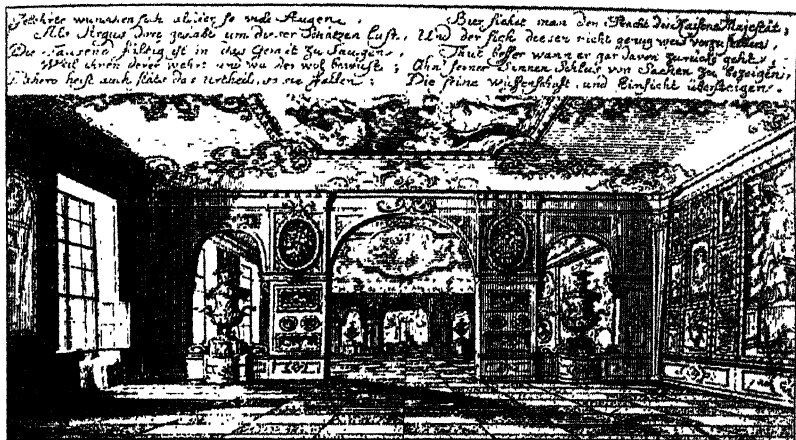 Gelehrte wünschen sich alhier so viele Augen,
Als Argus dort gehabt um dieser Schätzen Lust,
Die Tausend fältig ist in das Gemüt zu Saugen,
Weil ihnen derer wehrt und der wol bewust;
Bishero heist auch stäts das Urtheil, so sie fällen:
Hier siehet man den Pracht des Kaisers Majestät;
Und der sich dieser nicht genug weis vorzustellen,
Thut besser wann er gar davon zurucke geht,
seiner Sinnen Schlus von Sachen zu bezeigen,
Die seine Wissenschaft und Einsicht übersteigen.